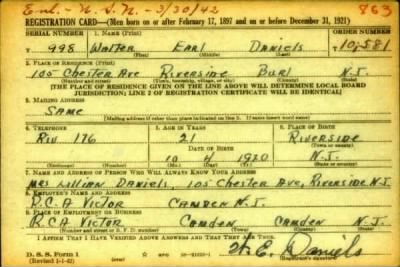 Enl. - U.S.N. - 3/30/42 763
REGISTRATION CARD—(Men born on or after February 17, 1897 and on or before December 31, 1921)
SERIAL NUMBER 1. NAME (Print) ORDER NUMBER
T 998 Walter Earl Daniels 10,581
(First) (Middle) (Last)
2. PLACE OF RESIDENCE (Print)
105 Chester Ave Riverside Burl N.J.
(Number and street) (Town, township, village, or city) (County) (State)
[THE PLACE OF RESIDENCE GIVEN ON THE LINE ABOVE WILL DETERMINE LOCAL BOARD
JURISDICTION; LINE 2 OF REGISTRATION CERTIFICATE WILL BE IDENTICAL]
3. MAILING ADDRESS
SAME
[Mailing address if other than place indicated on line 2. If same insert word same]
4. TELEPHONE 5. AGE IN YEARS 6. PLACE OF BIRTH
Riv 176 21 Riverside
DATE OF BIRTH
10 4 1920 N.J.
7. NAME AND ADDRESS OF PERSON WHO WILL ALWAYS KNOW YOUR ADDRESS
Mrs Lillian Daniels, 105 Chester Ave, Riverside N.J.
8. EMPLOYER'S NAME AND ADDRESS
R.C.A Victor Camden N.J.
9. PLACE OF EMPLOYMENT OR BUSINESS
R.C.A Victor Camden Camden N.J.
(Number and street or R. F. D. number) (Town) (County) (State)
I AFFIRM THAT I HAVE VERIFIED ABOVE ANSWERS AND THAT THEY ARE TRUE.
D. S. S. Form 1 W. E. Daniels
(Revised 1-1-42) (over) (Registrant's signature)